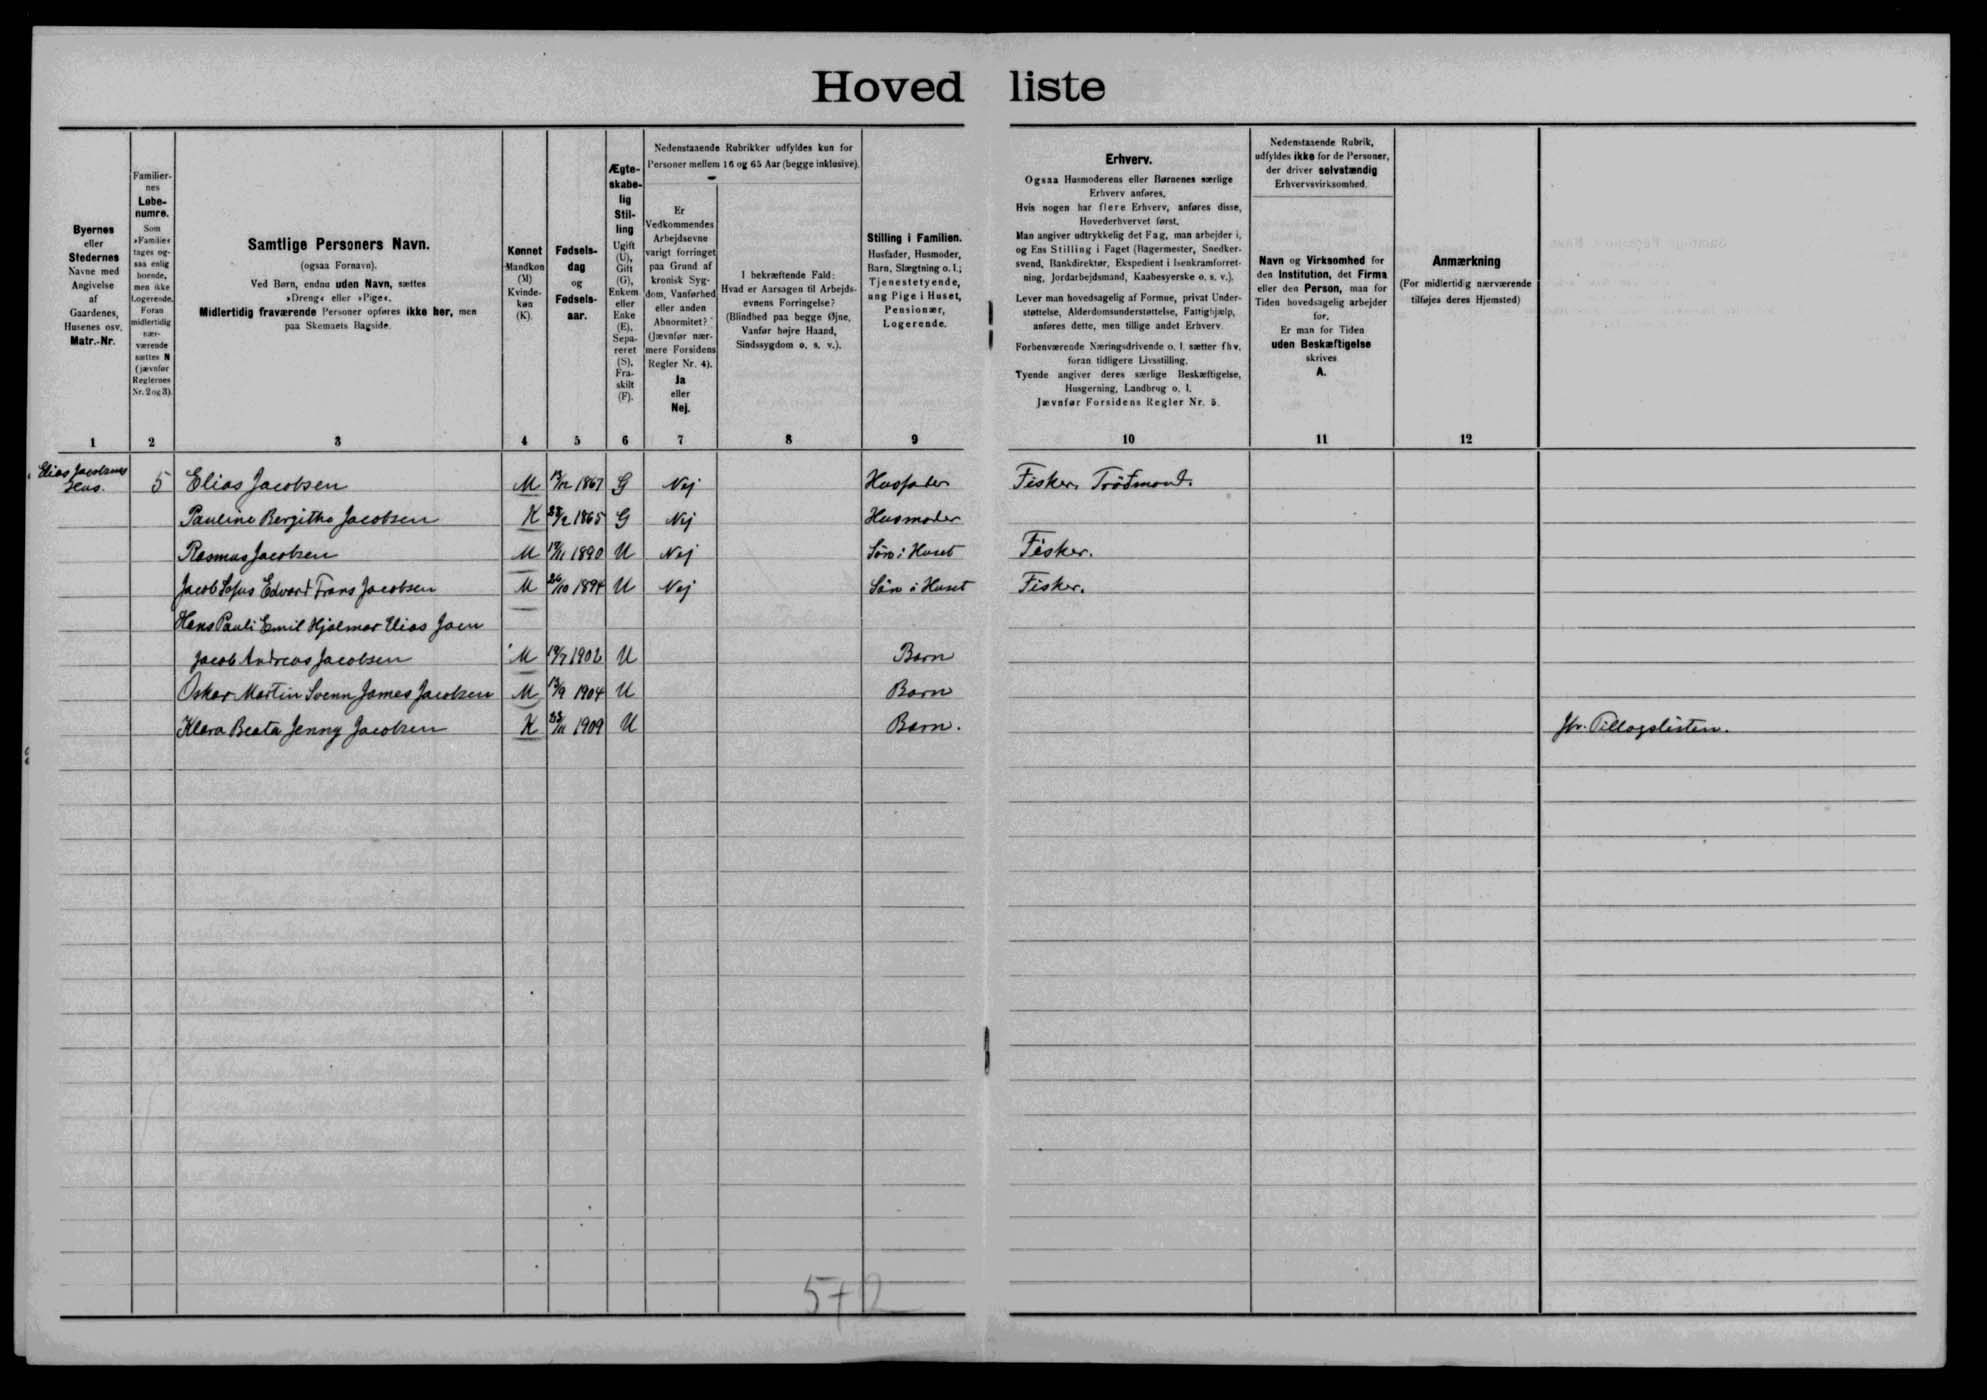 Hovedliste
Byernes
eller
Stedernes
Navne med
Angivelse
af
Gaardenes,
Husenes osv.
Matr.-Nr.
Familier-
nes
Løbe-
numre.
Som
»Familie«
tages og-
saa enlig
boende,
men ikke
Logerende.
Foran
midlertidig
nær-
værende
sættes N
(jævnfør
Reglernes
Nr. 2 og 3)
Samtlige Personers Navn.
(ogsaa Fornavn).
Ved Børn, endnu uden Navn, sættes
»Dreng« eller »Pige«.
Midlertidig fraværende Personer opføres ikke her, men
paa Skemaets Bagside.
Kønnet
Mandkøn
(M)
Kvinde-
køn
(K).
Fødsels-
dag
og
Fødsels-
aar.
Ægte-
skabe-
lig
Stil-
ling
Ugift
(U),
Gift
(G),
Enkem.
eller
Enke
(E),
Sepa-
reret
(S),
Fra-
skilt
(F).
Nedenstaaende Rubrikker udfyldes kun for
Personer mellem 16 og 65 Aar (begge inklusive).
Er
Vedkommendes
Arbejdsevne
varigt forringet
paa Grund af
kronisk Syg-
dom, Vanførhed
eller anden
Abnormitet?
(Jævnfør nær-
mere Forsidens
Regler Nr. 4).
Ja
eller
Nej.
I bekræftende Fald:
Hvad er Aarsagen til Arbejds-
evnens Forringelse?
(Blindhed paa begge Øjne,
Vanfør højre Haand,
Sindssygdom o. s. v.).
Stilling i Familien.
Husfader, Husmoder,
Barn, Slægtning o. l.;
Tjenestetyende,
ung Pige i Huset,
Pensionær,
Logerende.
Erhverv.
Ogsaa Husmoderens eller Børnenes særlige
Erhverv anføres.
Hvis nogen har flere Erhverv, anføres disse,
Hovederhvervet først.
Man angiver udtrykkelig det Fag, man arbejder i,
og Ens Stilling i Faget (Bagermester, Snedker-
svend, Bankdirektør, Ekspedient i Isenkramforret-
ning, Jordarbejdsmand, Kaabesyerske o. s. v.).
Lever man hovedsagelig af Formue, privat Under-
støttelse, Alderdomsunderstøttelse, Fattighjælp,
anføres dette, men tillige andet Erhverv.
Forhenværende Næringsdrivende o. l. sætter fhv.
foran tidligere Livsstilling.
Tyende angiver deres særlige Beskæftigelse,
Husgerning, Landbrug o. l.
Jævnfør Forsidens Regler Nr. 5.
Nedenstaaende Rubrik,
udfyldes ikke for de Personer,
der driver selvstændig
Erhvervsvirksomhed.
Navn og Virksomhed for
den Institution, det Firma
eller den Person, man for
Tiden hovedsagelig arbejder
for.
Er man for Tiden
uden Beskæftigelse
skrives
A.
Anmærkning
(For midlertidig nærværende
tilføjes deres Hjemsted)
1 2 3 4 5 6 7 8 9 10 11 12
Elias Jacobsens
Hus. 5 Elias Jacobsen M 1867 G Nej Husfader Fisker.
Pauline Bergithe Jacobsen K 1865 G Nej Husmoder
Rasmus Jacobsen M 1890 U Nej Søn i Huset Fisker.
Jacob Sofus Edvard Frans Jacobsen M 26/10 1894 U Nej Søn i Huset Fisker.
Hans Pauli Emil Hjalmar Elias Joen
Jacob Andreas Jacobsen M 19/7 1902 U Barn
Oskar Martin Svenn James Jacobsen M 1904 U Barn
Klara Beata Jenny Jacobsen K 1909 U Barn. Jfr. Tillægslisten.
5+2